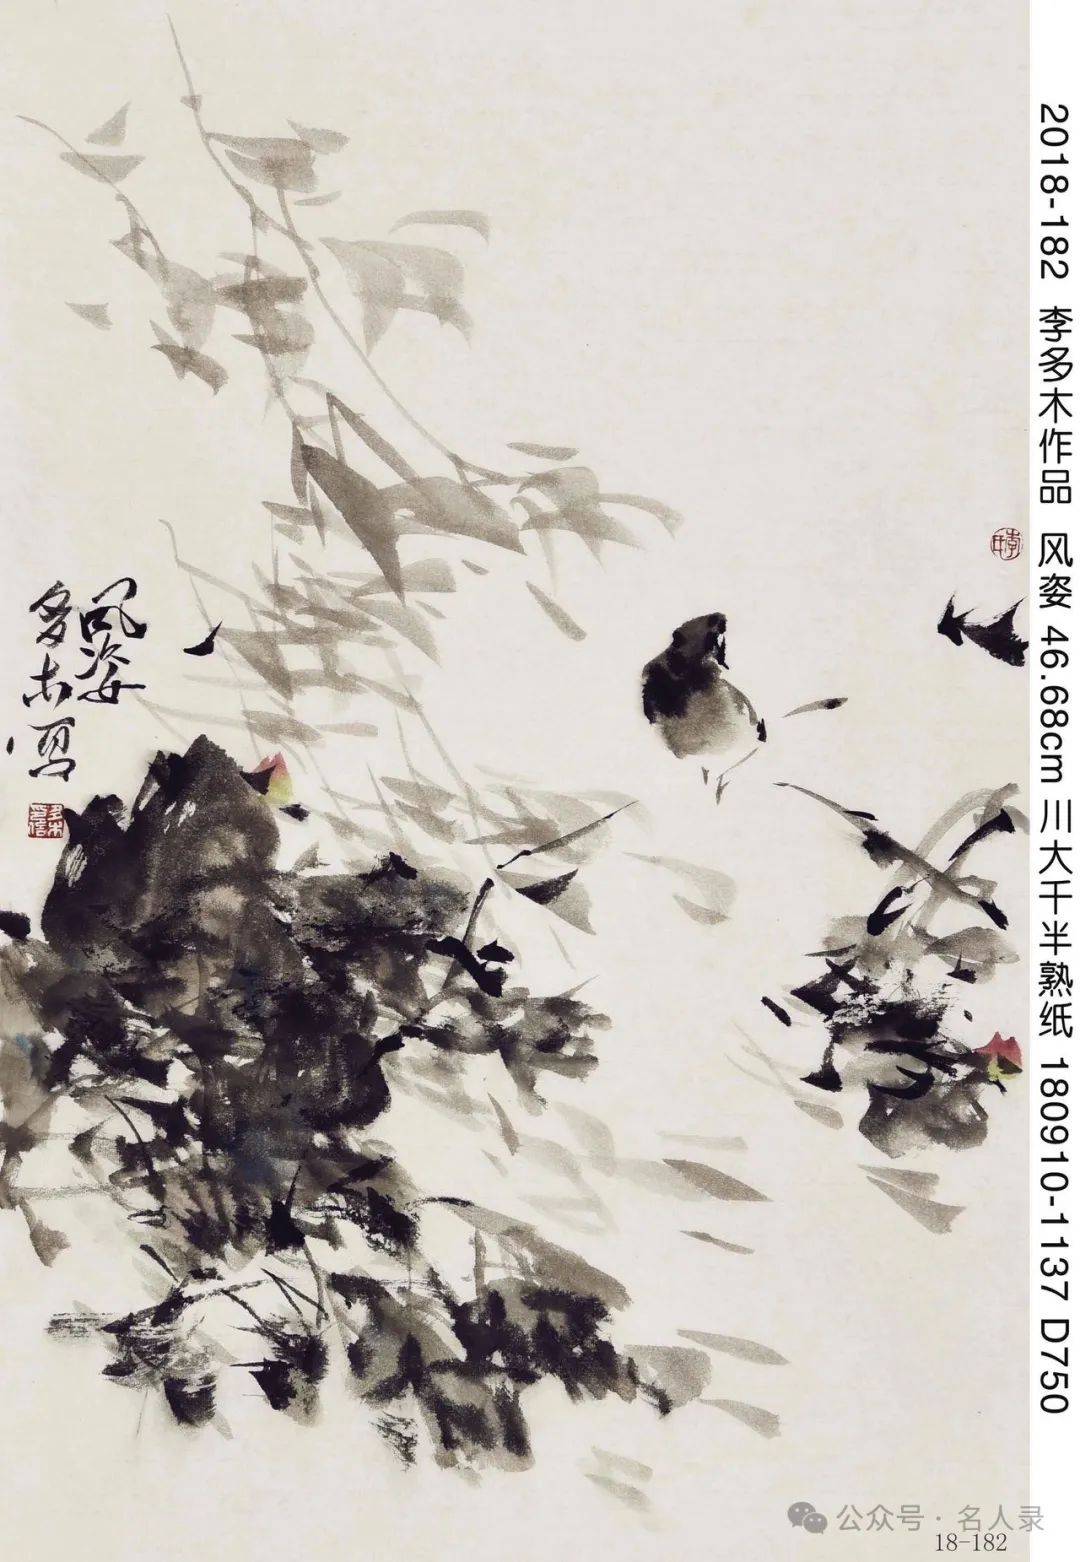 2018-182 李多木作品 风姿 46.68cm 川大千半熟纸 180910-1137 D750
風姿
多木寫
多木
李
公众号·名人录
18-182